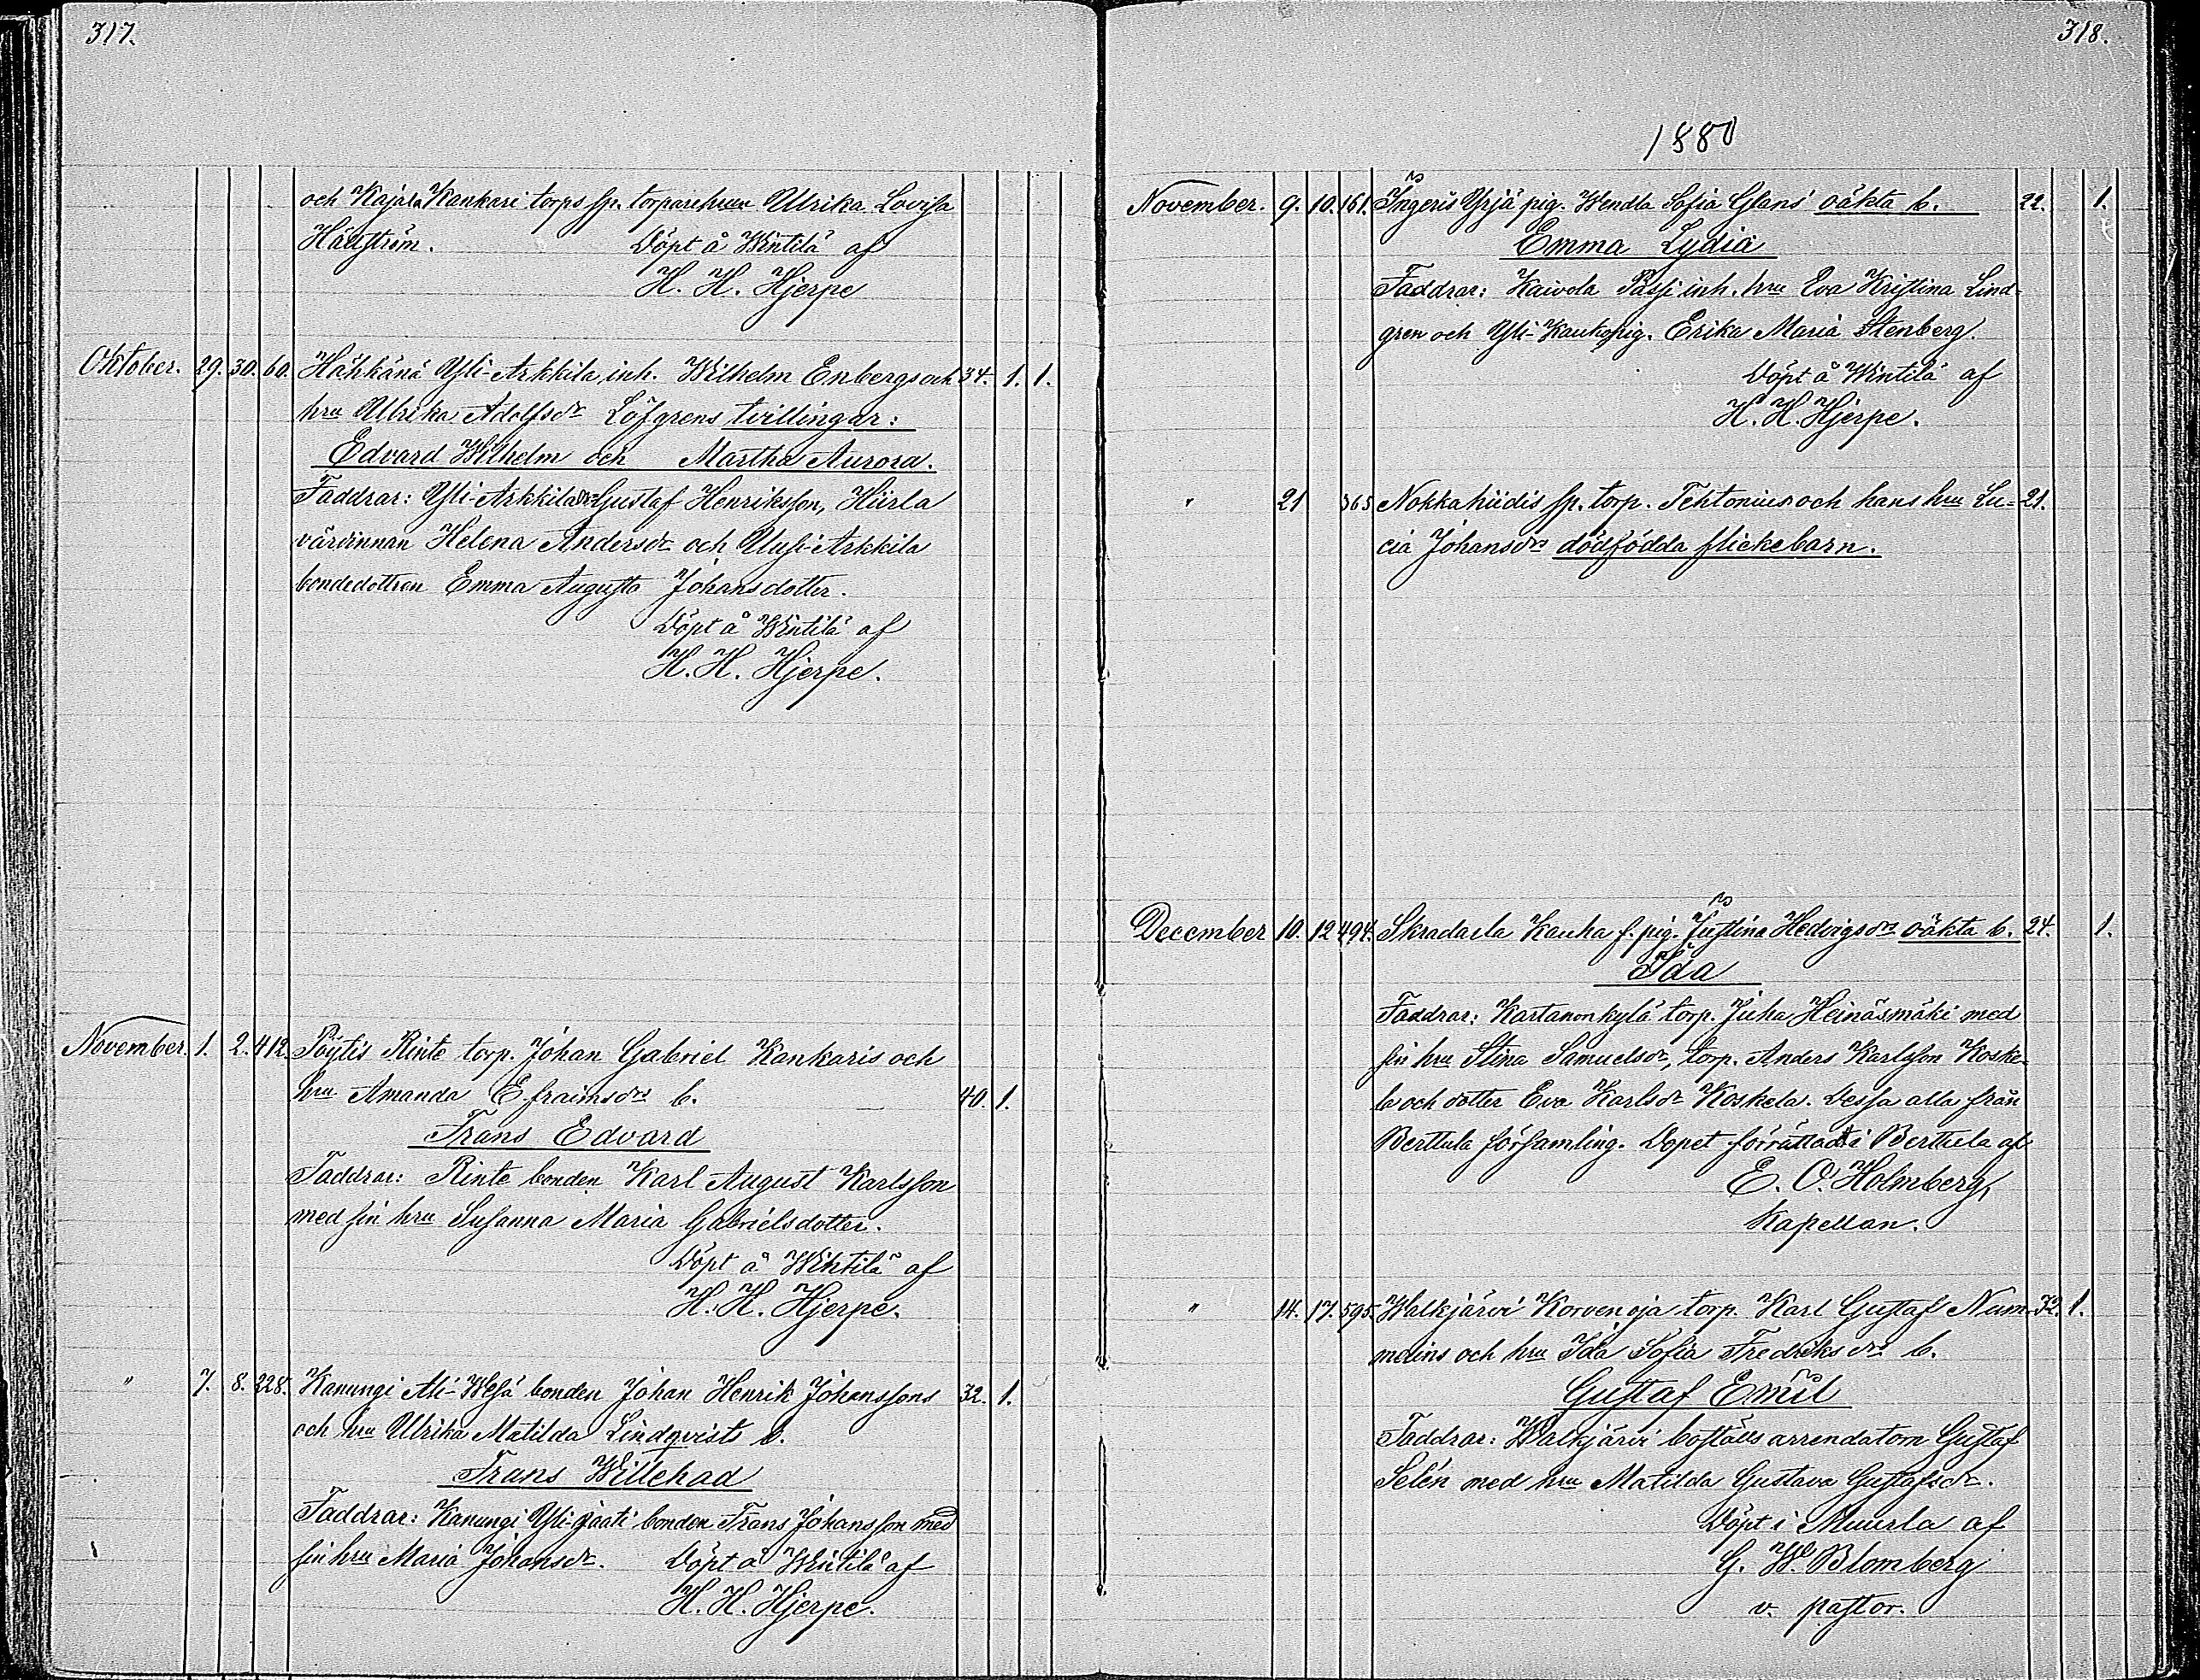 317.
och Kajala Kankari torps sp. torparehrun Ulrika Lovisa
Hällström. Döpt å Wintilä af
H. H. Hjerpe
Oktober. 29. 30. 60. Hähkänä Yli-Arkkila inh. Wilhelm Enbergs och 34. 1. 1.
hru Ulrika Adolfsdr Löfgrens tvillingar:
Edvard Wilhelm och Martha Aurora.
Faddrar: Yli-Arkkila Gustaf Henriksson, Hiirla
värdinnan Helena Andersdr och Uusi-Arkkila
bondedottren Emma Augusta Johansdotter.
Döpt å Wintilä af
H. H. Hjerpe.
November. 1. 2. 412. Pöytis Rinte torp. Johan Gabriel Kankaris och
hru Amanda Efraimsdrs b. 40. 1.
Frans Edvard
Faddrar: Rinte bonden Karl August Karlsson
med sin hru Susanna Maria Gabrielsdotter.
Döpt å Wintilä af
H. H. Hjerpe.
" 7. 8. 228. Kanungi Ali-Wesä bonden Johan Henrik Johanssons 32. 1.
och hru Ulrika Matilda Lindqvists b.
Frans Willehad
Faddrar: Kanungi Yli-Jaati bonden Frans Johansson med
sin hru Maria Johansdr. Döpt å Wintilä af
H. H. Hjerpe.
318.
1880
November. 9. 10. 161. Ingeris Yrjä pig. Wendla Sofia Glans' oäkta b. 22. 1.
Emma Lydia
Faddrar: Kaivola Passi inh. hru Eva Kristina Lind-
gren och Yli-Kauko pig. Erika Maria Stenberg.
Döpt å Wintilä af
H. H. Hjerpe.
" 21 365 Nokkahiidis sp. torp. Tehtonius och hans hru Lu- 21.
cia Johansdrs dödfödda flickebarn.
December 10. 12 494. Skradarla Kauha f. pig. Justina Hedvigsdrs oäkta b. 24. 1.
Ida
Faddrar: Kartanonkylä torp. Juha Heinäsmäki med
sin hru Stina Samuelsdr, torp. Anders Karlsson Koske-
la och dotter Eva Karlsdr Koskela. Dessa alla från
Berttula församling. Dopet förrättadt i Berttula af
E. O. Holmberg,
Kapellan.
" 14. 17. 595. Walkjärvi Korvenoja torp. Karl Gustaf Num- 32. 1.
melins och hru Ida Sofia Fredriksdrs b.
Gustaf Emil
Faddrar: Walkjärvi boställs arrendatorn Gustaf
Selén med hru Matilda Gustava Gustafsdr.
Döpt i Muurla af
G. W. Blomberg
v. pastor.